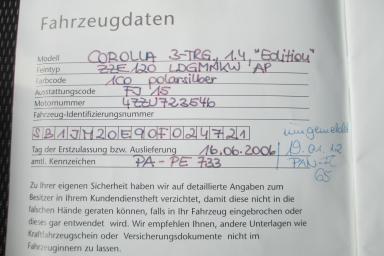 Fahrzeugdaten
Modell COROLLA 3-TRG, 1.4, "Edition"
Feintyp ZZE120 LDGMNKW AP
Farbcode 1C0 polarsilber
Ausstattungscode FJ 15
Motornummer 4ZZU723546
Fahrzeug-Identifizierungsnummer
SB1JM20E90F024721
Tag der Erstzulassung bzw. Auslieferung 16.06.2006
amtl. Kennzeichen PA-PE 733
umgemeldet
19.01.12
PAN-
65
Zu Ihrer eigenen Sicherheit haben wir auf detaillierte Angaben zum
Besitzer in Ihrem Kundendienstheft verzichtet, damit diese nicht in die
falschen Hände geraten können, falls in Ihr Fahrzeug eingebrochen oder
dieses gar entwendet wird. Wir empfehlen Ihnen, andere Unterlagen wie
Kraftfahrzeugschein oder Versicherungsdokumente nicht im
Fahrzeuginnern zu lassen.